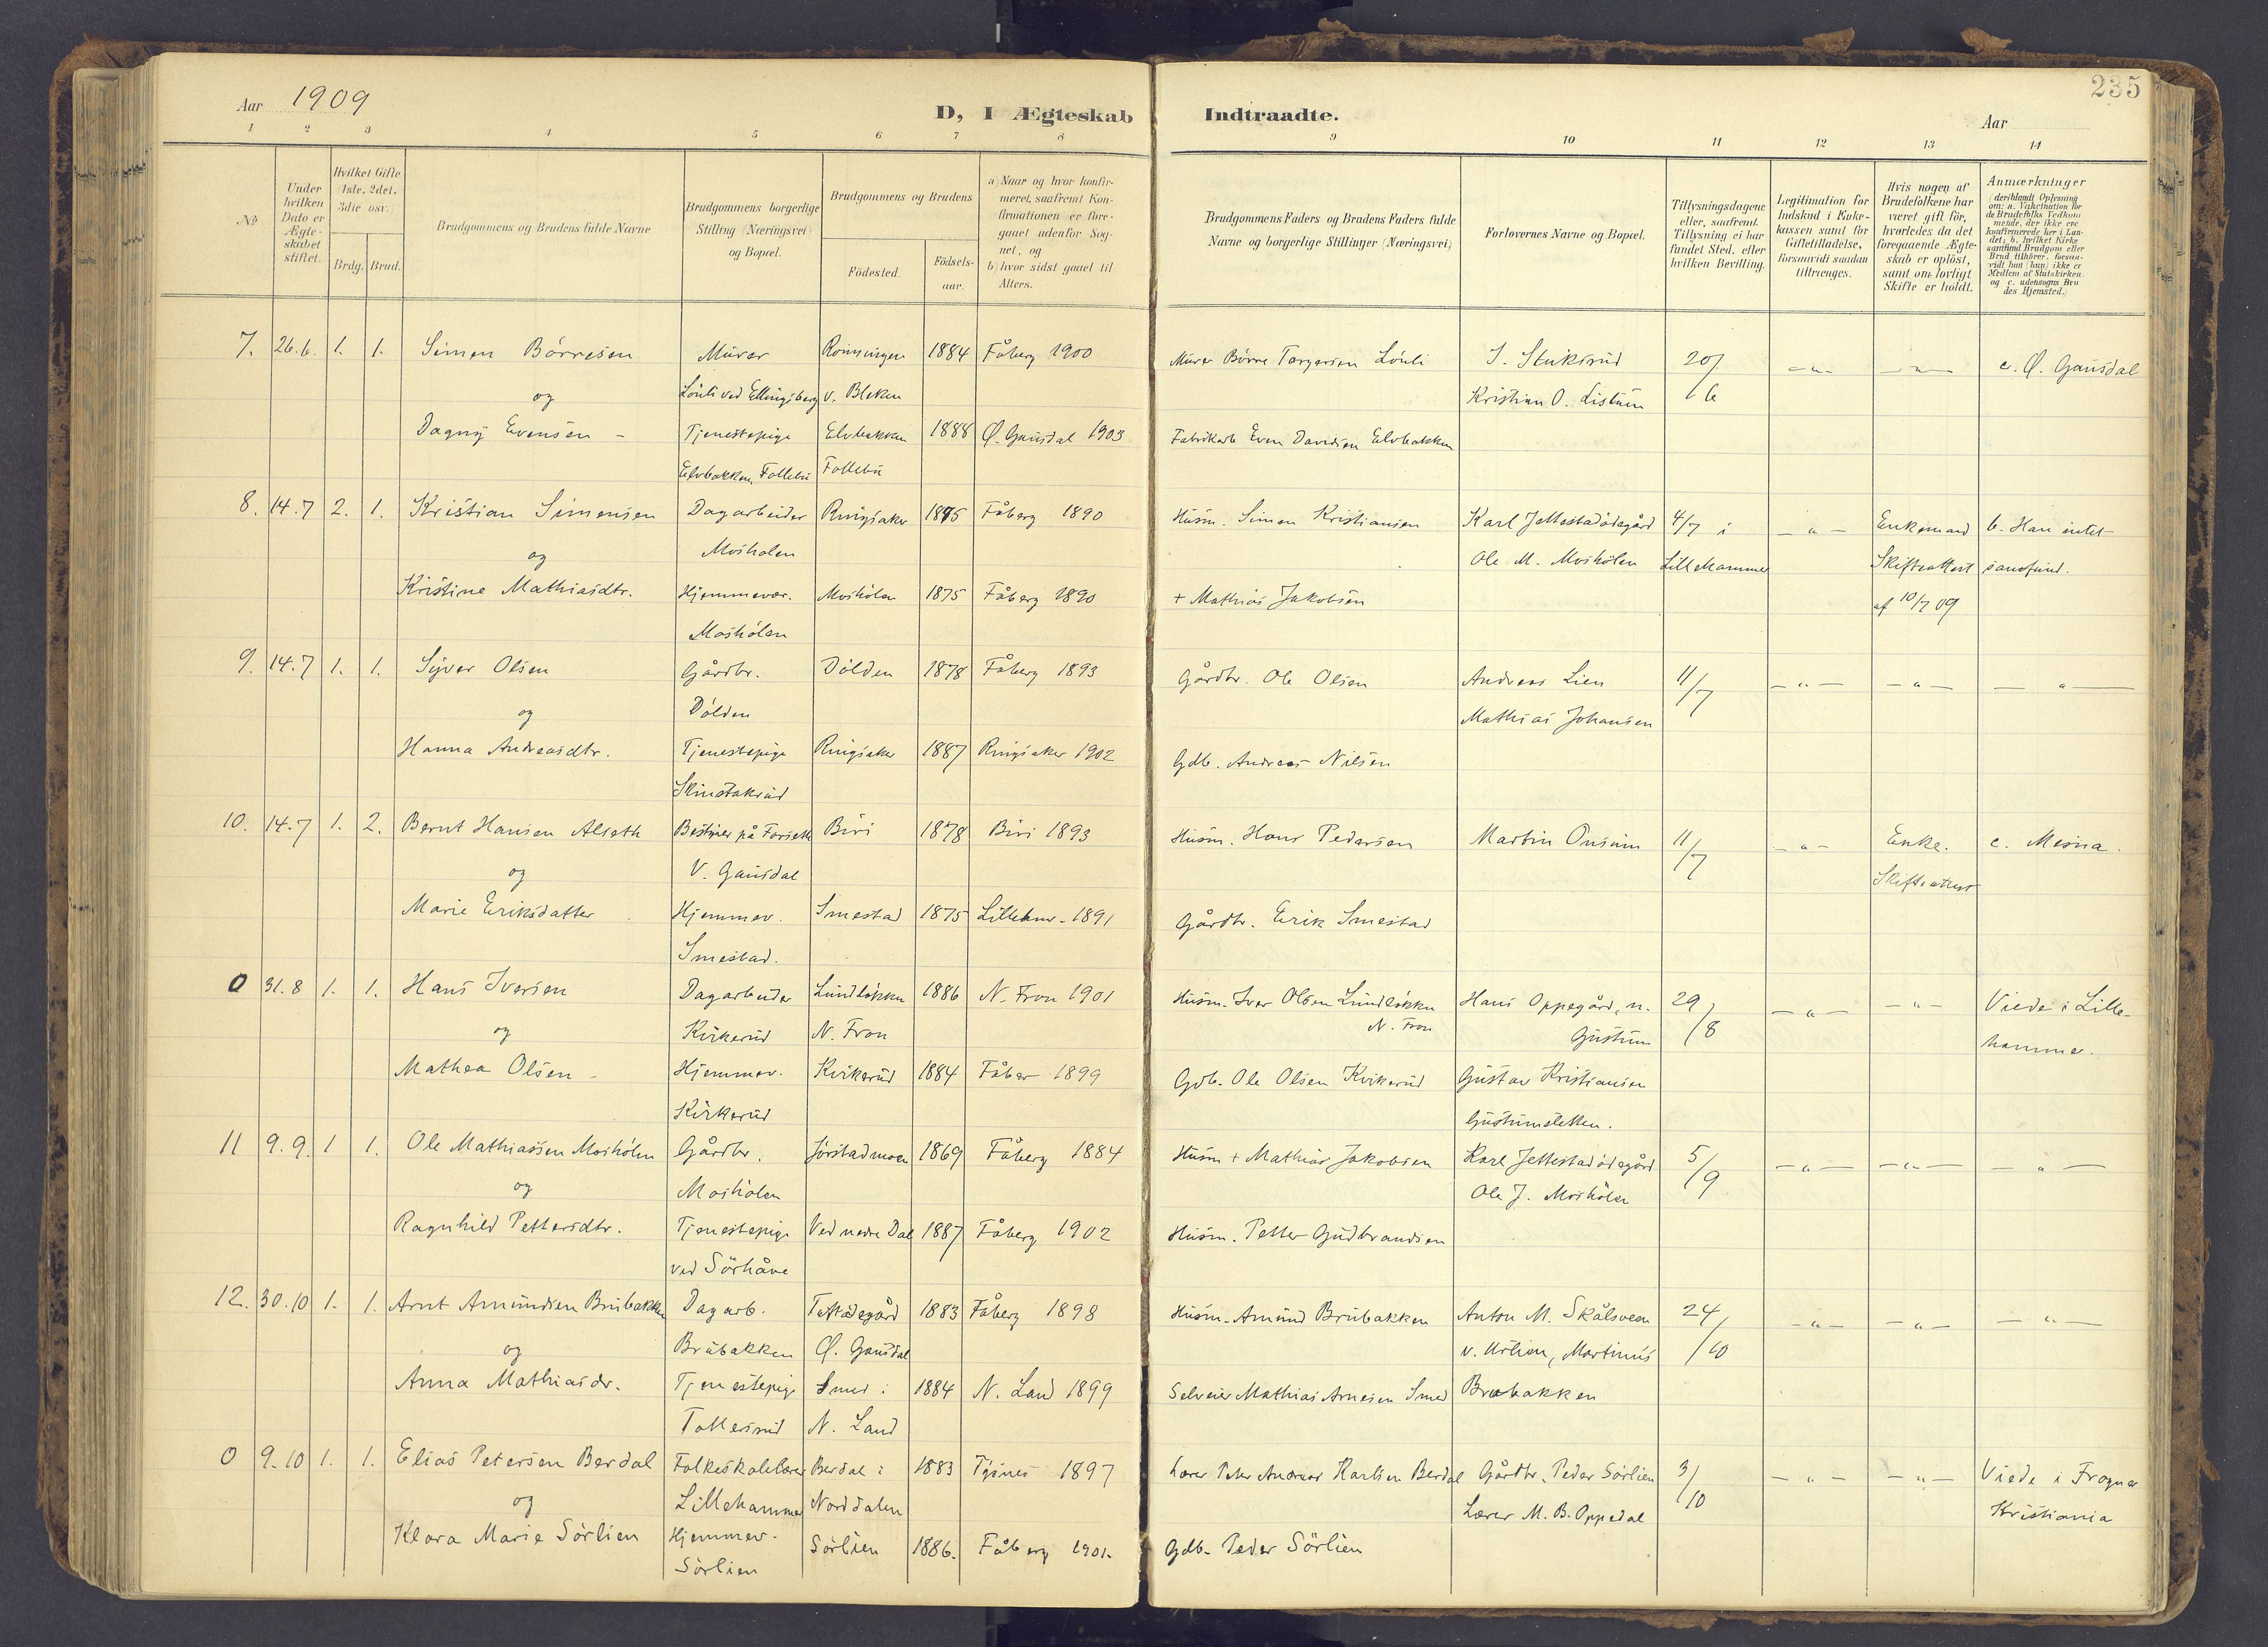 235
Aar 1909
D, I Ægteskab Indtraadte.
Aar
1 2 3 4 5 6 7 8 9 10 11 12 13 14
No.
Under hvilken Dato er Ægteskabet stiftet.
Hvilket Gifte (1ste, 2det, 3die osv.)
Brdg. Brud.
Brudgommens og Brudens fulde Navne
Brudgommens borgerlige Stilling (Næringsvei) og Bopæl.
Brudgommens og Brudens
Födested. Födselsaar.
a) Naar og hvor konfirmeret, saafremt Konfirmationen er foregaaet udenfor Sognet, og
b) hvor sidst gaaet til Alters.
Brudgommens Faders og Brudens Faders fulde Navne og borgerlige Stillinger (Næringsvei)
Forlovernes Navne og Bopæl.
Tillysningsdagene eller, saafremt Tillysning ei har fundet Sted, efter hvilken Bevilling.
Legitimation for Indskud i Enkekassen samt for Giftetilladelse, forsaavidt saadan tiltrænges.
Hvis nogen af Brudefolkene har været gift för, hvorledes da det foregaaende Ægteskab er oplöst, samt om lovligt Skifte er holdt.
Anmærkninger (deriblandt Oplysning om: a. Vakcination for de Brudefolks Vedkommende, der ikke ere konfirmerede her i Landet; b. hvilket Kirkesamfund Brudgom eller Brud tilhörer, forsaavidt han (hun) ikke er Medlem af Statskirken, og c. udensogns Brudes Hjemsted.)
7. 26.6. 1. 1. Simen Börresen Murer 1884 Fåberg 1900 Murer Börre Torgersen Lönli S. Stuksrud 20/6 -"- -"- c. Ø. Gausdal
og Lönli ved Ellingsberg v. Bleken Kristian O. Listum
Dagny Evensen - Tjenestepige Elvbakken 1888 Ø. Gausdal 1903 Fabrikarb. Even Davidsen Elvbakken
Elvbakken, Follebu Follebu
8. 14.7 2. 1. Kristian Simensen Dagarbeider Ringsaker 1875 Fåberg 1890 Husm. Simen Kristiansen Karl Jettestadödegård 4/7 i -"- Enkemand b. Han intet
og Mosholen Ole M. Moshölen Lillehammer Skifteattest samfund.
Kristine Mathiasdtr. Hjemmevær. Moshölen 1875 Fåberg 1890 + Mathias Jakobsen af 10/7 09
Moshölen
9. 14.7 1. 1. Syver Olsen Gårdbr. Dölden 1878 Fåberg 1893 Gårdbr. Ole Olsen Andreas Lien 11/7 -"- -"- -"-
og Dölden Mathias Johansen
Hanna Andreasdtr. Tjenestepige Ringsaker 1887 Ringsaker 1902 Gdb. Andreas Nilsen
Skinstakrud
10. 14.7 1. 2. Bernt Hansen Alseth Bestyrer på Forseth Biri 1878 Biri 1893 Husm. Hans Pedersen Martin Onsum 11/7 -"- Enke. c. Mesna.
og V. Gausdal Skifteattest
Marie Eriksdatter Hjemmev. Smestad 1875 Lillehmr. 1891 Gårdbr. Erik Smestad
Smestad.
0 31.8 1. 1. Hans Iversen Dagarbeider Lundlökken 1886 N. Fron 1901 Husm. Iver Olsen Lundlökken Hans Oppegård, n. 29/8 -"- -"- Viede i Lille-
og Kirkerud N. Fron N. Fron Gustum hammer.
Mathea Olsen - Hjemmev. Kvikerud 1884 Fåber 1899 Gdb. Ole Olsen Kvikerud Gustav Kristiansen
Kirkerud Gustumsletten.
11 9.9. 1 1. Ole Mathiassen Moshölen Gårdbr. Jörstadmoen 1869 Fåberg 1884 Husm + Mathias Jakobsen Karl Jettestadödegård 5/9 -"- -"- -"-
og Mosholen Ole J. Moshölen
Ragnhild Pettersdtr. Tjenestepige Ved nedre Dal 1887 Fåberg 1902 Husm. Petter Gudbrandsen
ved Sörhåve
12. 30.10 1. 1. Arnt Amundsen Brubakken Dagarb. 1883 Fåberg 1898 Husm. Amund Brubakken Anton M. Skålsveen 24/10 -"- -"- -"-
og Brubakken Ø. Gausdal v. Martinus
Anna Mathiasdr. Tjenestepige Smed i 1884 N. Land 1899 Selveier Mathias Arnesen Smed Brubakken
Tollersrud N. Land
0 9.10 1. 1. Elias Petersen Berdal Folkeskolelærer Berdal i 1883 Tysnes 1897 Lærer Peter Andreas Karlsen Berdal Gårdbr. Peder Sörlien 3/10 -"- -"- Viede i Frogner
og Lillehammer Norddalen Lærer M. B. Oppedal Kristiania
Klara Marie Sörlien Hjemmev. Sörlien 1886. Fåberg 1901. Gdb. Peder Sörlien
Sörlien